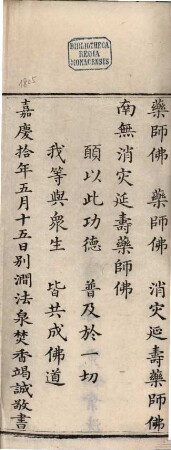 BIBLIOTHECA
REGIA
MONACENSIS
1805
藥師佛 藥師佛 消灾延壽藥師佛
南無消灾延壽藥師佛
願以此功德 普及於一切
我等與衆生 皆共成佛道
嘉慶拾年五月十五日別澗法泉焚香竭誠敬書